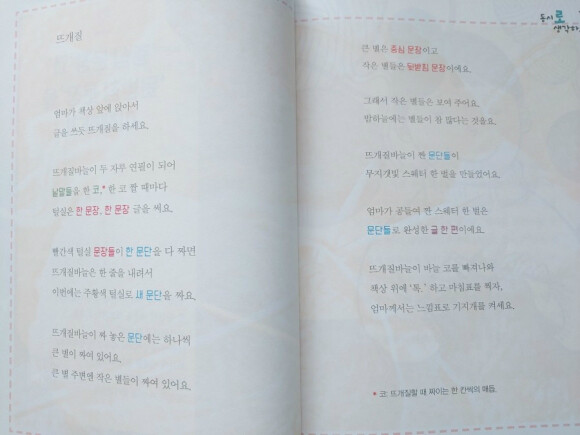 뜨개질
엄마가 책상 앞에 앉아서
글을 쓰듯 뜨개질을 하세요.
뜨개질바늘이 두 자루 연필이 되어
낱말들을 한 코,* 한 코 짤 때마다
털실은 한 문장, 한 문장 글을 써요.
빨간색 털실 문장들이 한 문단을 다 짜면
뜨개질바늘은 한 줄을 내려서
이번에는 주황색 털실로 새 문단을 짜요.
뜨개질바늘이 짜 놓은 문단에는 하나씩
큰 별이 짜여 있어요.
큰 별 주변엔 작은 별들이 짜여 있어요.
동시로
생각하
큰 별은 중심 문장이고
작은 별들은 뒷받침 문장이에요.
그래서 작은 별들은 보여 주어요.
밤하늘에는 별들이 참 많다는 것을요.
뜨개질바늘이 짠 문단들이
무지갯빛 스웨터 한 벌을 만들었어요.
엄마가 공들여 짠 스웨터 한 벌은
문단들로 완성한 글 한 편이에요.
뜨개질바늘이 바늘 코를 빠져나와
책상 위에 ‘톡.’ 하고 마침표를 찍자,
엄마께서는 느낌표로 기지개를 켜세요.
* 코: 뜨개질할 때 짜이는 한 칸씩의 매듭.